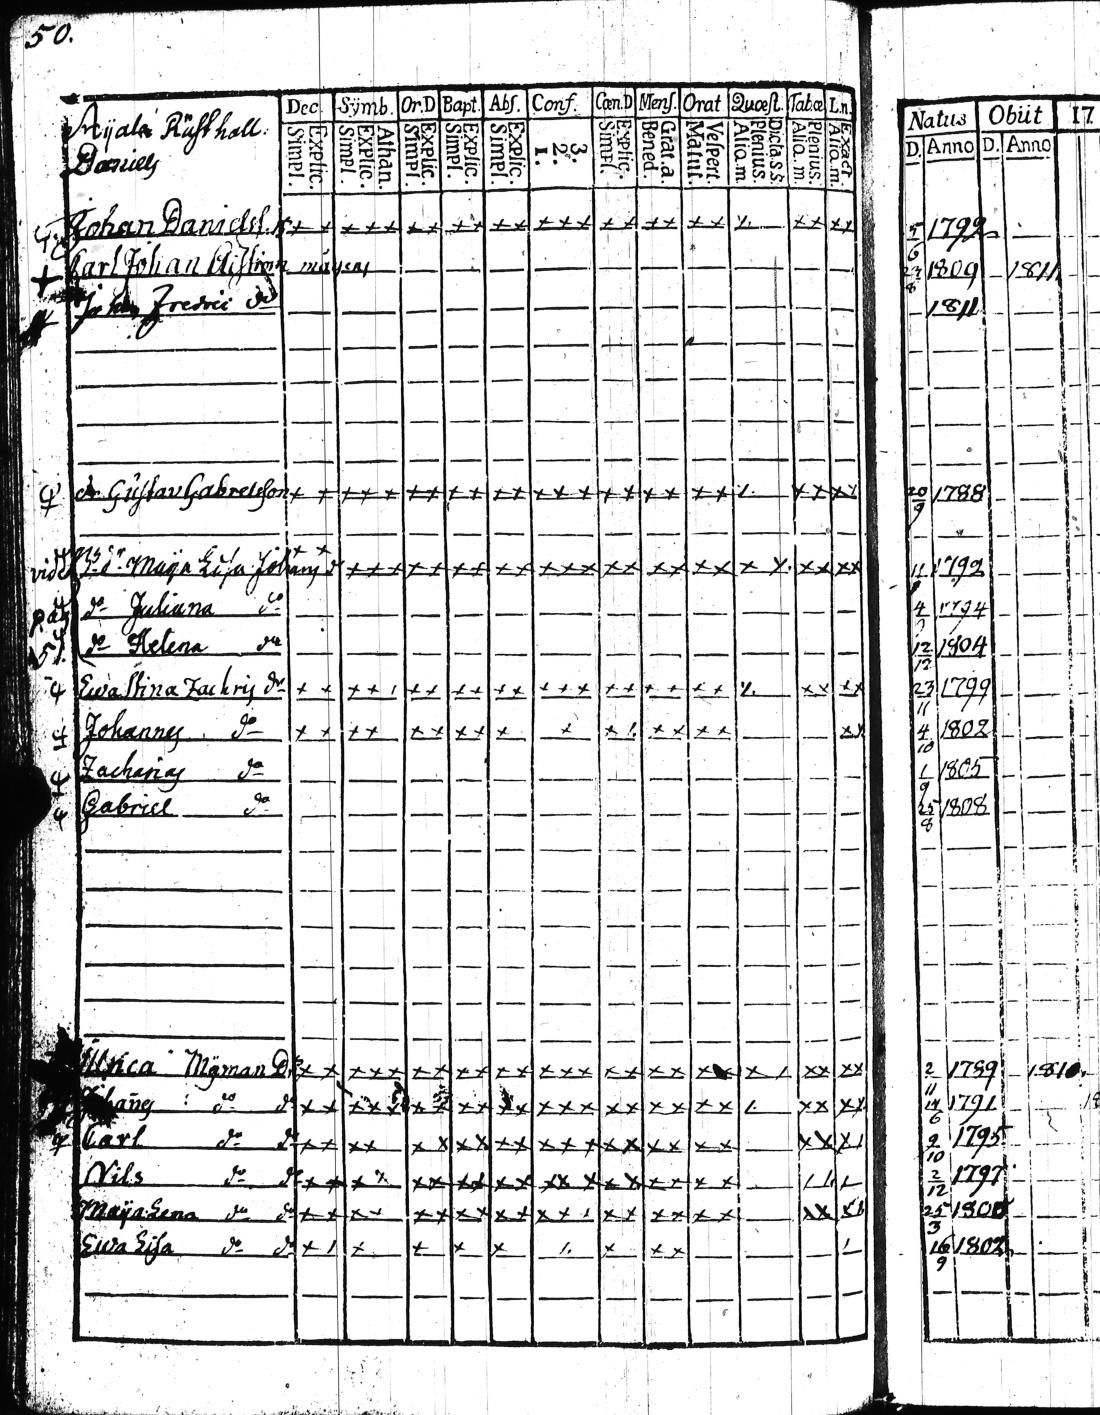 50.
Dec. Sÿmb. Or.D Bapt. Abs. Conf. Cœn.D Mens. Orat Quœst. Tabœ L.n.
Simpl. Explic. Simpl. Explic. Athan. Simpl. Explic. Simpl. Explic. Simpl. Explic. 1. 2. 3. Simpl. Explic. Bened. Grat.a. Matut. Vespert. Alio.m. Plenius. Dicta.s.s. Alio.m. Plenius. Alio.m. Exact
Natus Obiit 17
D. Anno D. Anno
Rüsthall.
Daniels
Johan Daniels. 5/6 1792
Carl Johan 1809 1811
Fredric do 1811
dr Gustav Gabrielsson 20/9 1788
vide Maÿa Lisa Johans dr 11 1792
pag do Juliana do 4 1794
51. do Helena do 12/12 1804
Ewa Stina Zachris dr 23/11 1799
Johannes do 4/10 1802
Zacharias do 1/9 1805
Gabriel do 25/8 1808
Ulrica Mÿman Dr 2/11 1789 1810.
Johans do do 14/6 1791 18
Carl do do 9/10 1795
Nils do do 2/12 1797
Maÿa Lena do do 25/3 1800
Ewa Lisa do do 16/9 1802